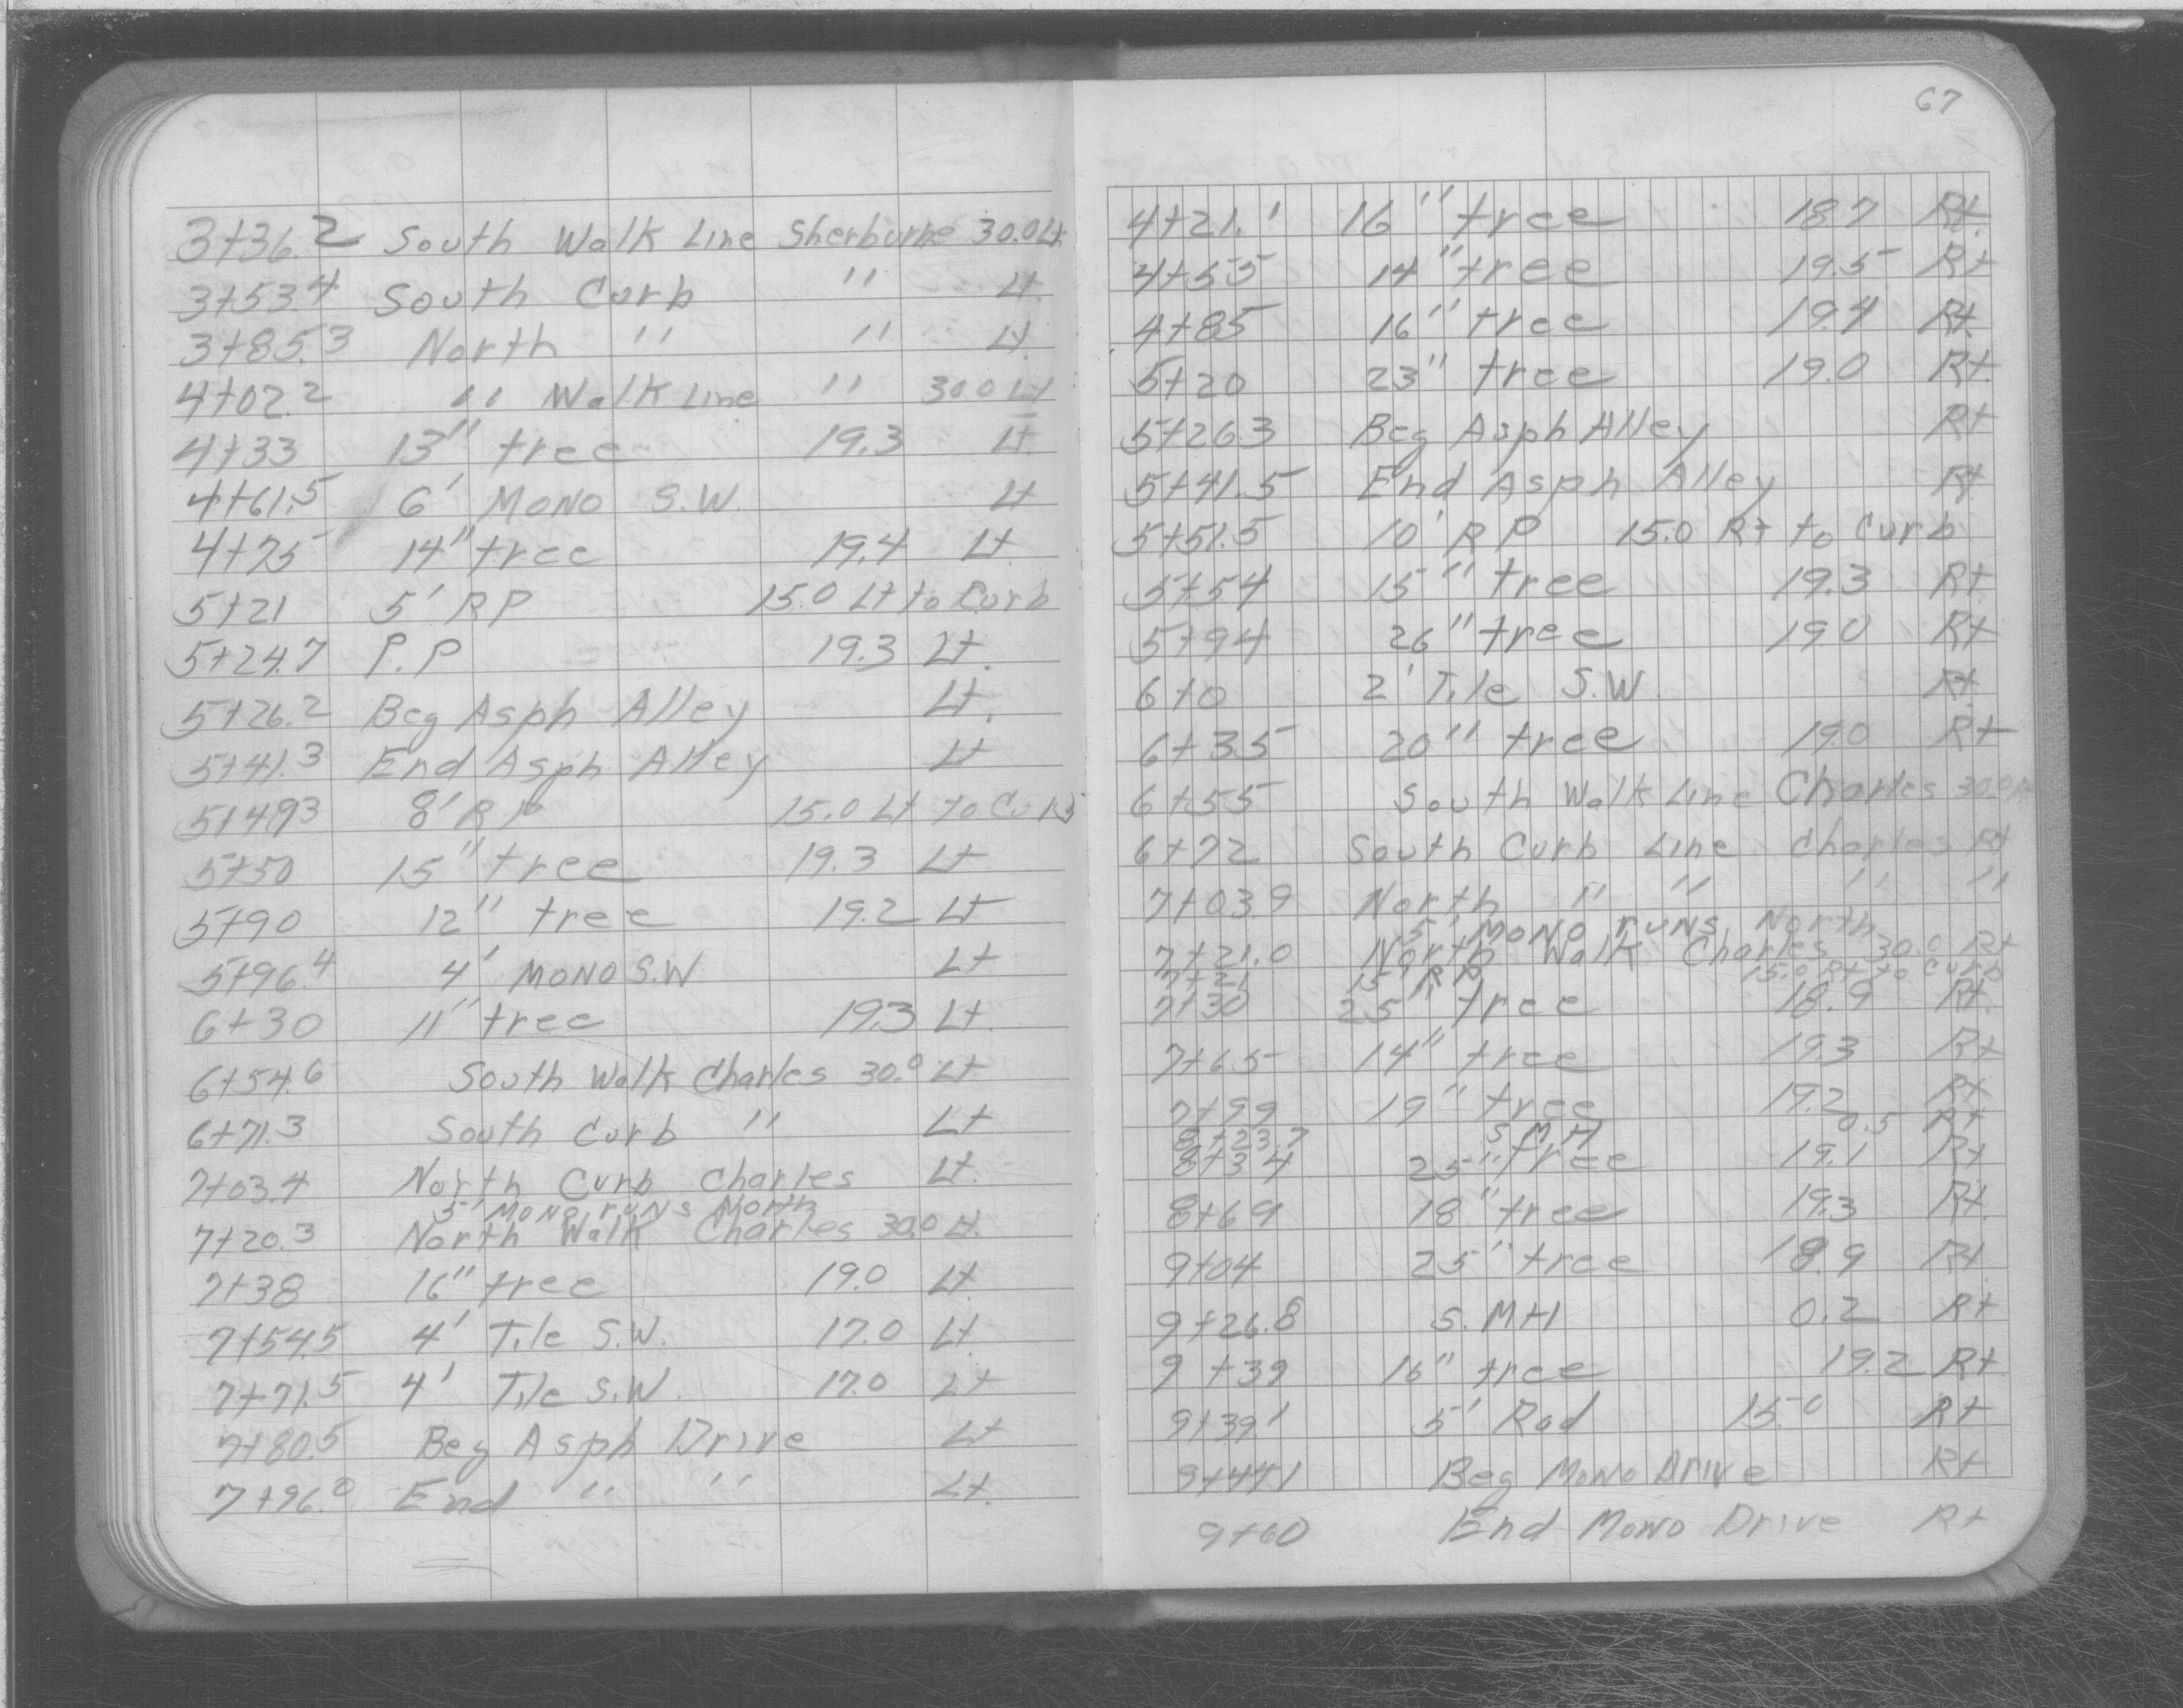 3+36.2 South Walk Line Sherburne 30.0 Lt.
3+53.4 South Curb " Lt.
3+85.3 North " " Lt.
4+02.2 " Walk Line " 30.0 Lt
4+33 13" tree 19.3 Lt.
4+61.5 6' MONO S.W. Lt
4+75 14" tree 19.4 Lt.
5+21 5' RP 15.0 Lt to Curb
5+24.7 P.P 19.3 Lt.
5+26.2 Beg Asph Alley Lt.
5+41.3 End Asph Alley Lt
5+49.3 8' RP 15.0 Lt to Curb
5+50 15" tree 19.3 Lt
5+90 12" tree 19.2 Lt
5+96.4 4' MONO S.W Lt
6+30 11" tree 19.3 Lt.
6+54.6 South Walk Charles 30.0 Lt
6+71.3 South Curb " Lt
7+03.4 North Curb Charles Lt.
5' MONO runs North
7+20.3 North Walk Charles 30.0 Lt.
7+38 16" tree 19.0 Lt.
7+54.5 4' Tile S.W. 17.0 Lt.
7+71.5 4' Tile S.W. 17.0 Lt
7+80.5 Beg Asph Drive Lt
7+96.0 End " " Lt.
67
4+21.1 16" tree 18.7 Rt.
4+55 14" tree 19.5 Rt
4+85 16" tree 19.4 Rt.
5+20 23" tree 19.0 Rt.
5+26.3 Beg Asph Alley Rt
5+41.5 End Asph Alley Rt.
5+51.5 10' RP 15.0 Rt to Curb
5+54 15" tree 19.3 Rt
5+94 26" tree 19.0 Rt
6+0 2' Tile S.W. Rt
6+35 20" tree 19.0 Rt
6+55 South Walk Line Charles 30.0 Rt
6+72 South Curb Line Charles Rt
7+03.9 North " " " "
5' MONO runs North
7+21.0 North Walk Charles 30.0 Rt
7+21 15' RP 15.0 Rt to Curb
7+30 25" tree 18.9 Rt.
7+65 14" tree 19.3 Rt
7+99 19" tree 19.2 Rt
8+23.7 S.M.H 0.5 Rt
8+34 25" tree 19.1 Rt
8+69 18" tree 19.3 Rt.
9+04 25" tree 18.9 Rt.
9+26.8 S.MH 0.2 Rt
9+39 16" tree 19.2 Rt
9+39.1 5' Rad 15.0 Rt
9+44.1 Beg Mono Drive Rt
9+60 End Mono Drive Rt